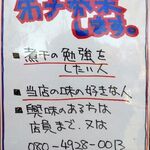 します。
■煮干の勉強を
したい人
■当店の味の好きな人
■興味のある方は
店員まで.又は
080-4928-0013